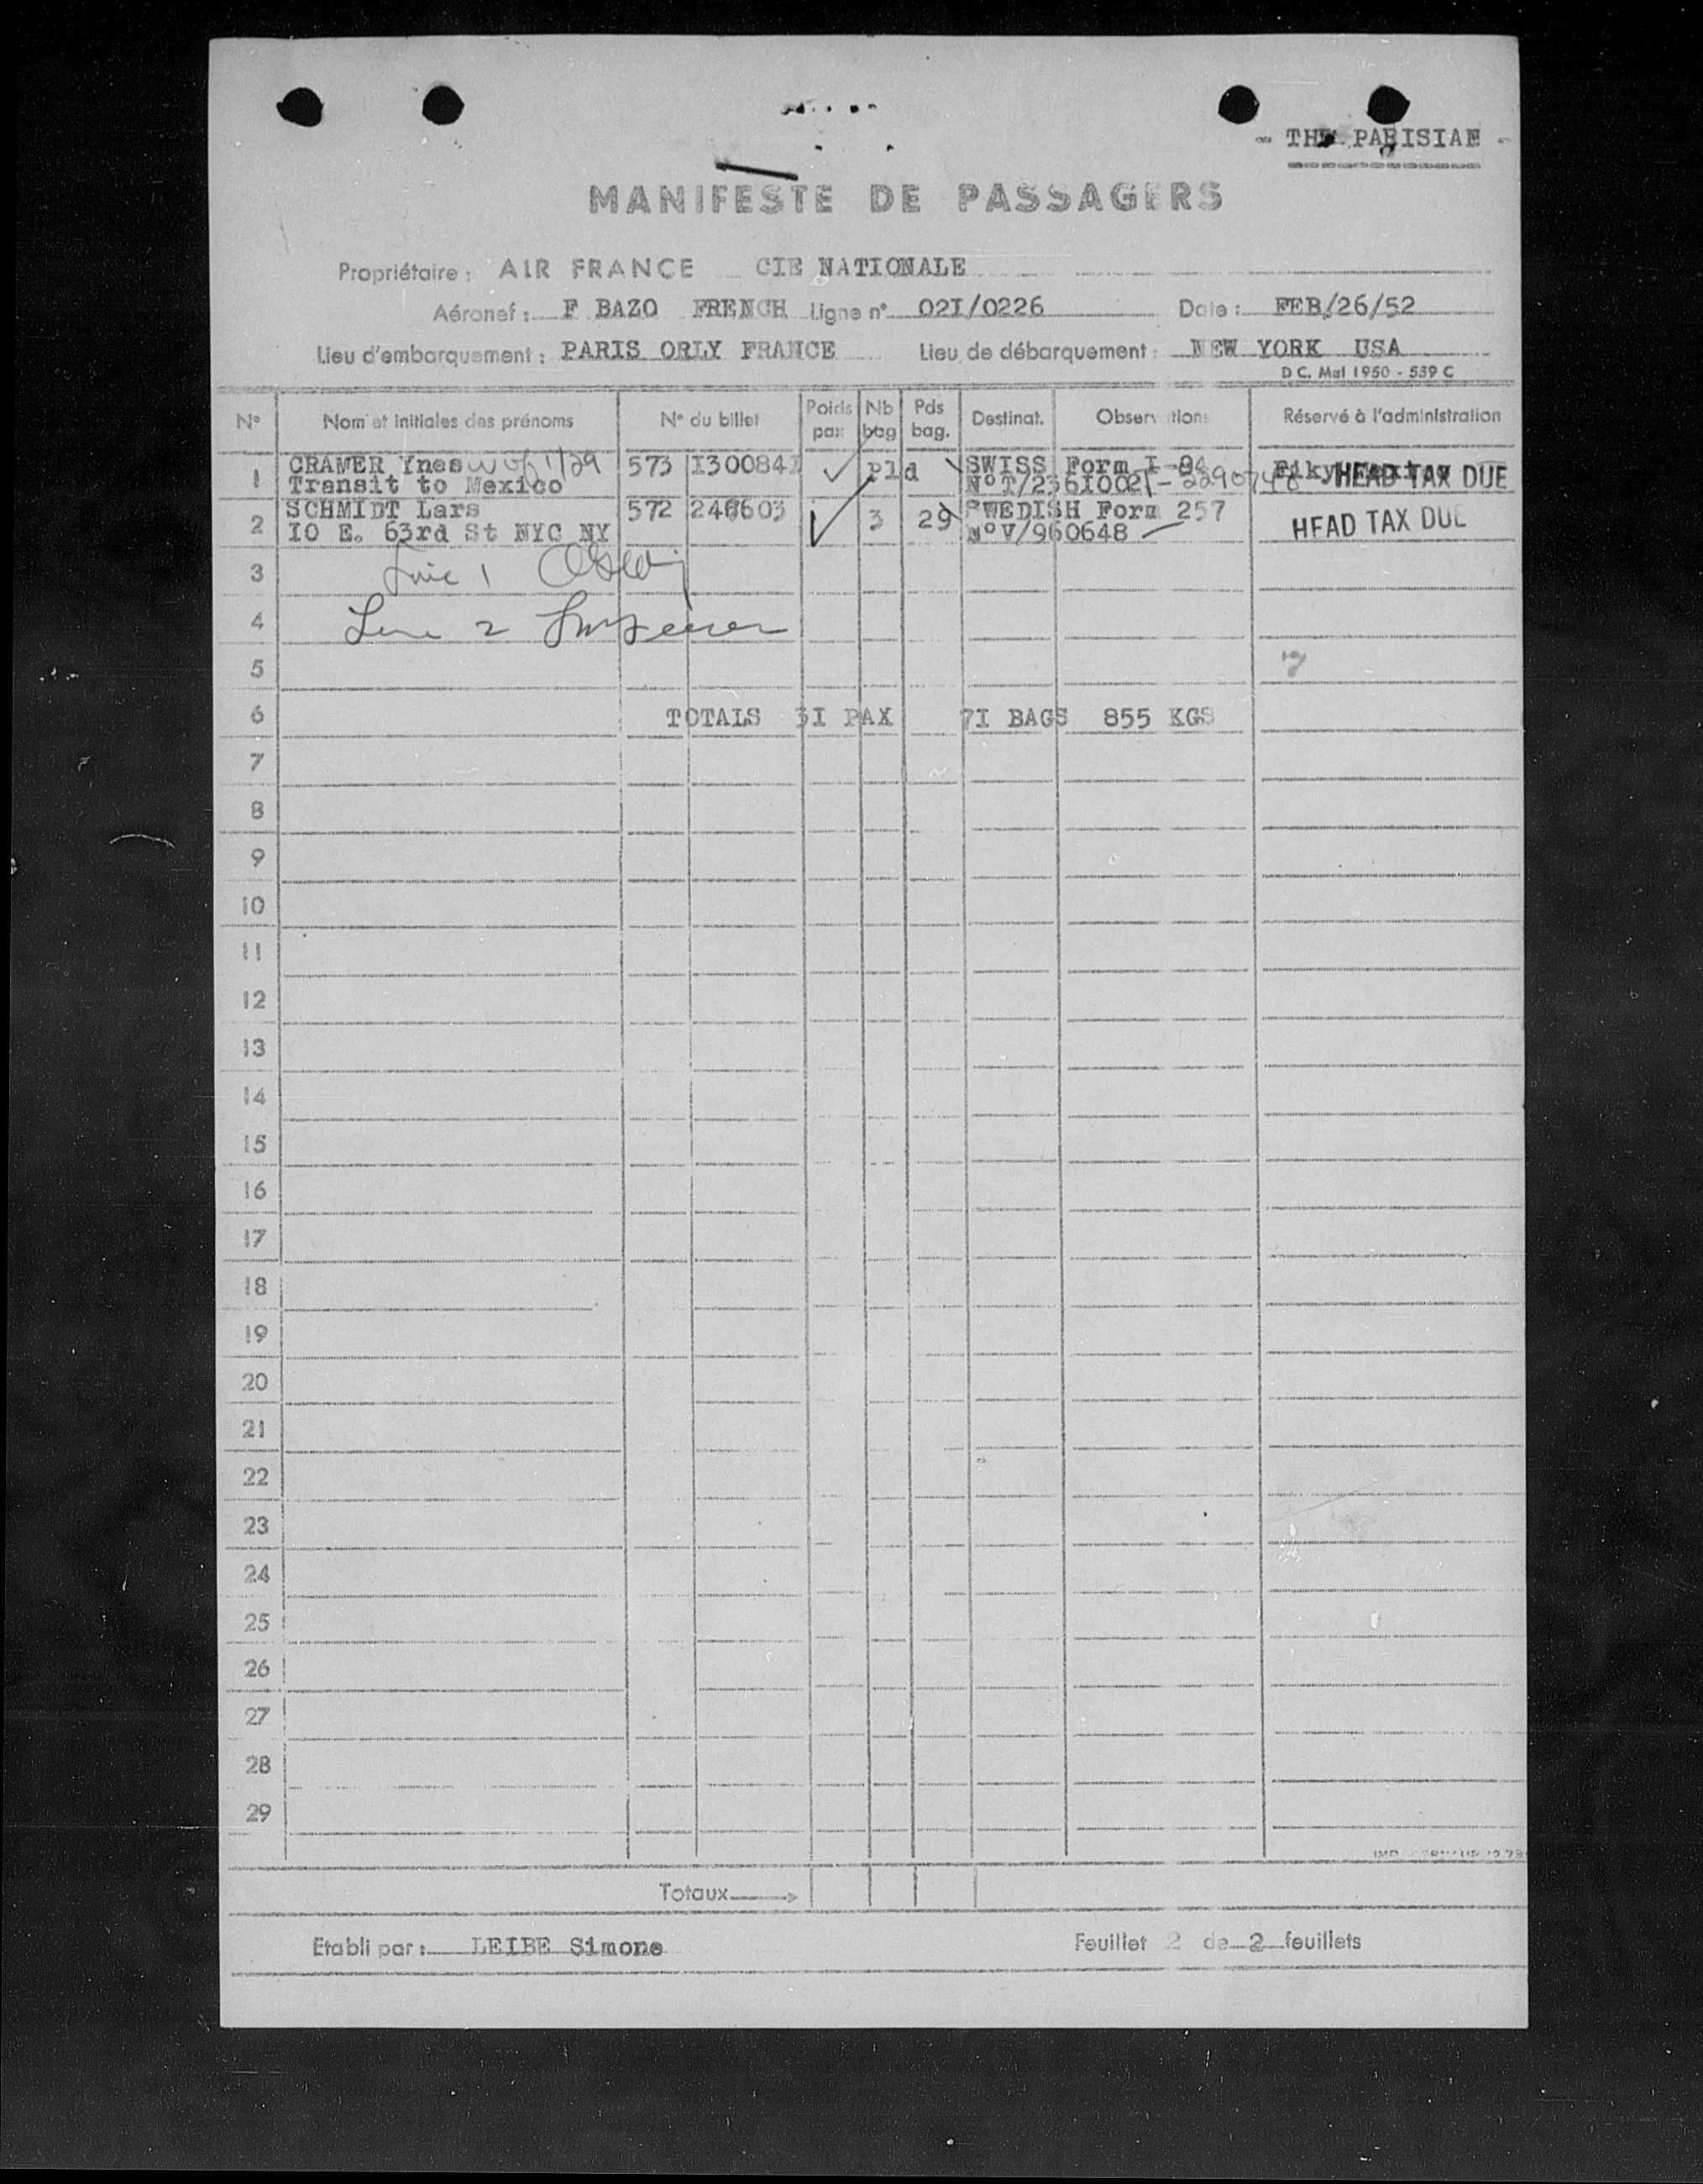 - THE PARISIAN -
MANIFESTE DE PASSAGERS
Propriétaire : AIR FRANCE CIE NATIONALE
Aéronef : F BAZO FRENCH Ligne n° 02I/0226 Date : FEB/26/52
Lieu d'embarquement : PARIS ORLY FRANCE Lieu de débarquement : NEW YORK USA
D C. Mai 1950 - 539 C
N° Nom et initiales des prénoms N° du billet Poids pax Nb bag Pds bag. Destinat. Observations Réservé à l'administration
1 CRAMER Ynes 573 I300841 pld SWISS Form I-94 HEAD TAX DUE
Transit to Mexico N°T/236I002
2 SCHMIDT Lars 572 246603 3 29 SWEDISH Form 257 HEAD TAX DUE
I0 E. 63rd St NYC NY N°V/960648
3 Line 1
4 Line 2
5 7
6 TOTALS 3I PAX 7I BAGS 855 KGS
7
8
9
10
11
12
13
14
15
16
17
18
19
20
21
22
23
24
25
26
27
28
29
Totaux
Etabli par : LEIBE Simone Feuillet 2 de 2 feuillets